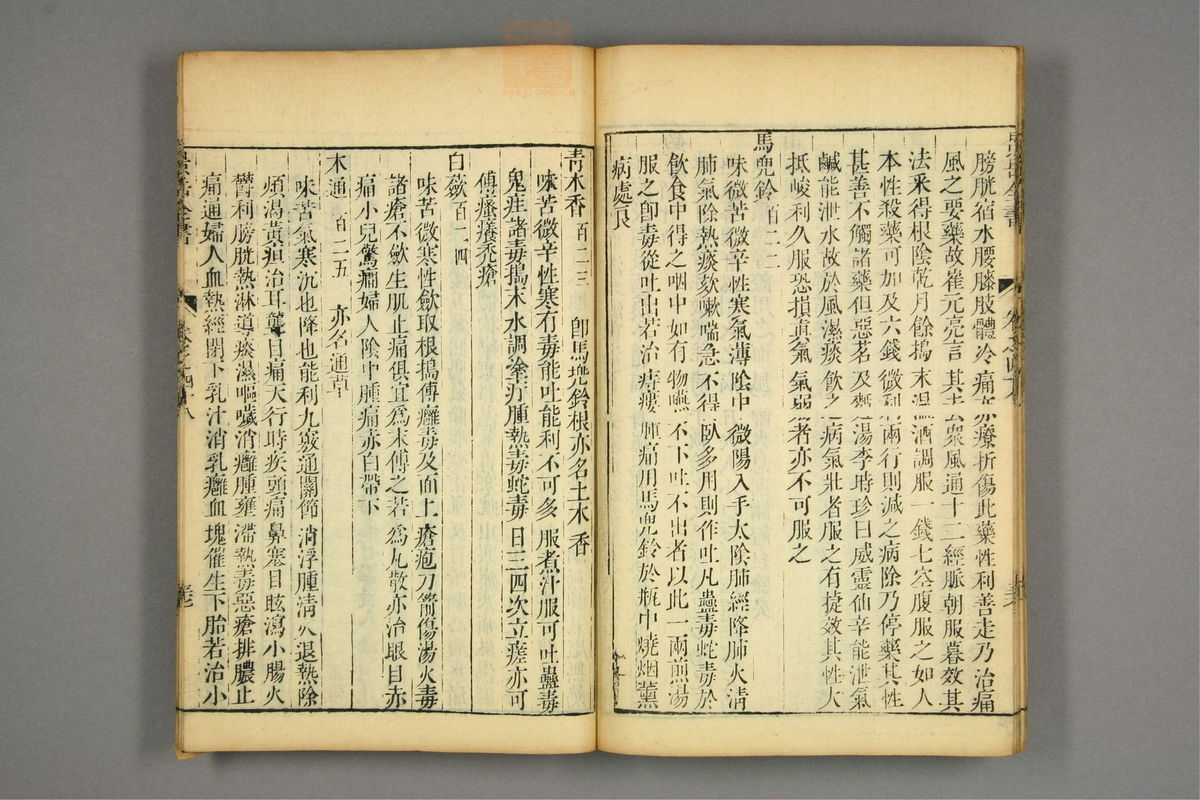 膀胱宿水腰膝肢體冷痛亦療折傷此藥性利善走乃治痛
風之要藥故崔元亮言其去衆風通十二經脈朝服暮效其
法采得根陰乾月餘搗末溫酒調服一錢七空腹服之如人
本性殺藥可加及六錢微利兩行則減之病除乃停藥其性
甚善不觸諸藥但惡茗及麪湯李時珍曰威靈仙辛能泄氣
鹹能泄水故於風濕痰飲之病氣壯者服之有捷效其性大
抵峻利久服恐損眞氣氣弱者亦不可服之
馬兜鈴 百二二
味微苦微辛性寒氣薄陰中微陽入手太陰肺經降肺火淸
肺氣除熱痰欬嗽喘急不得臥多用則作吐凡蠱毒蛇毒於
飲食中得之咽中如有物嚥不下吐不出者以此一兩煎湯
服之卽毒從吐出若治痔瘻腫痛用馬兜鈴於瓶中燒烟薰
病處良
靑木香 百二三 卽馬兜鈴根亦名土木香
味苦微辛性寒有毒能吐能利不可多服煮汁服可吐蠱毒
鬼疰諸毒搗末水調塗疔腫熱毒蛇毒日三四次立瘥亦可
傅瘙癢禿瘡
白蘞 百二四
味苦微寒性歛取根搗傅癰毒及面上瘡疱刀箭傷湯火毒
諸瘡不歛生肌止痛俱宜爲末傅之若爲丸散亦治眼目赤
痛小兒驚癇婦人陰中腫痛赤白帶下
木通 百二五 亦名通草
味苦氣寒沉也降也能利九竅通關節消浮腫淸火退熱除
煩渴黃疸治耳聾目痛天行時疾頭痛鼻塞目眩瀉小腸火
鬱利膀胱熱淋導痰濕嘔噦消癰腫壅滯熱毒惡瘡排膿止
痛通婦人血熱經閉下乳汁消乳癰血塊催生下胎若治小